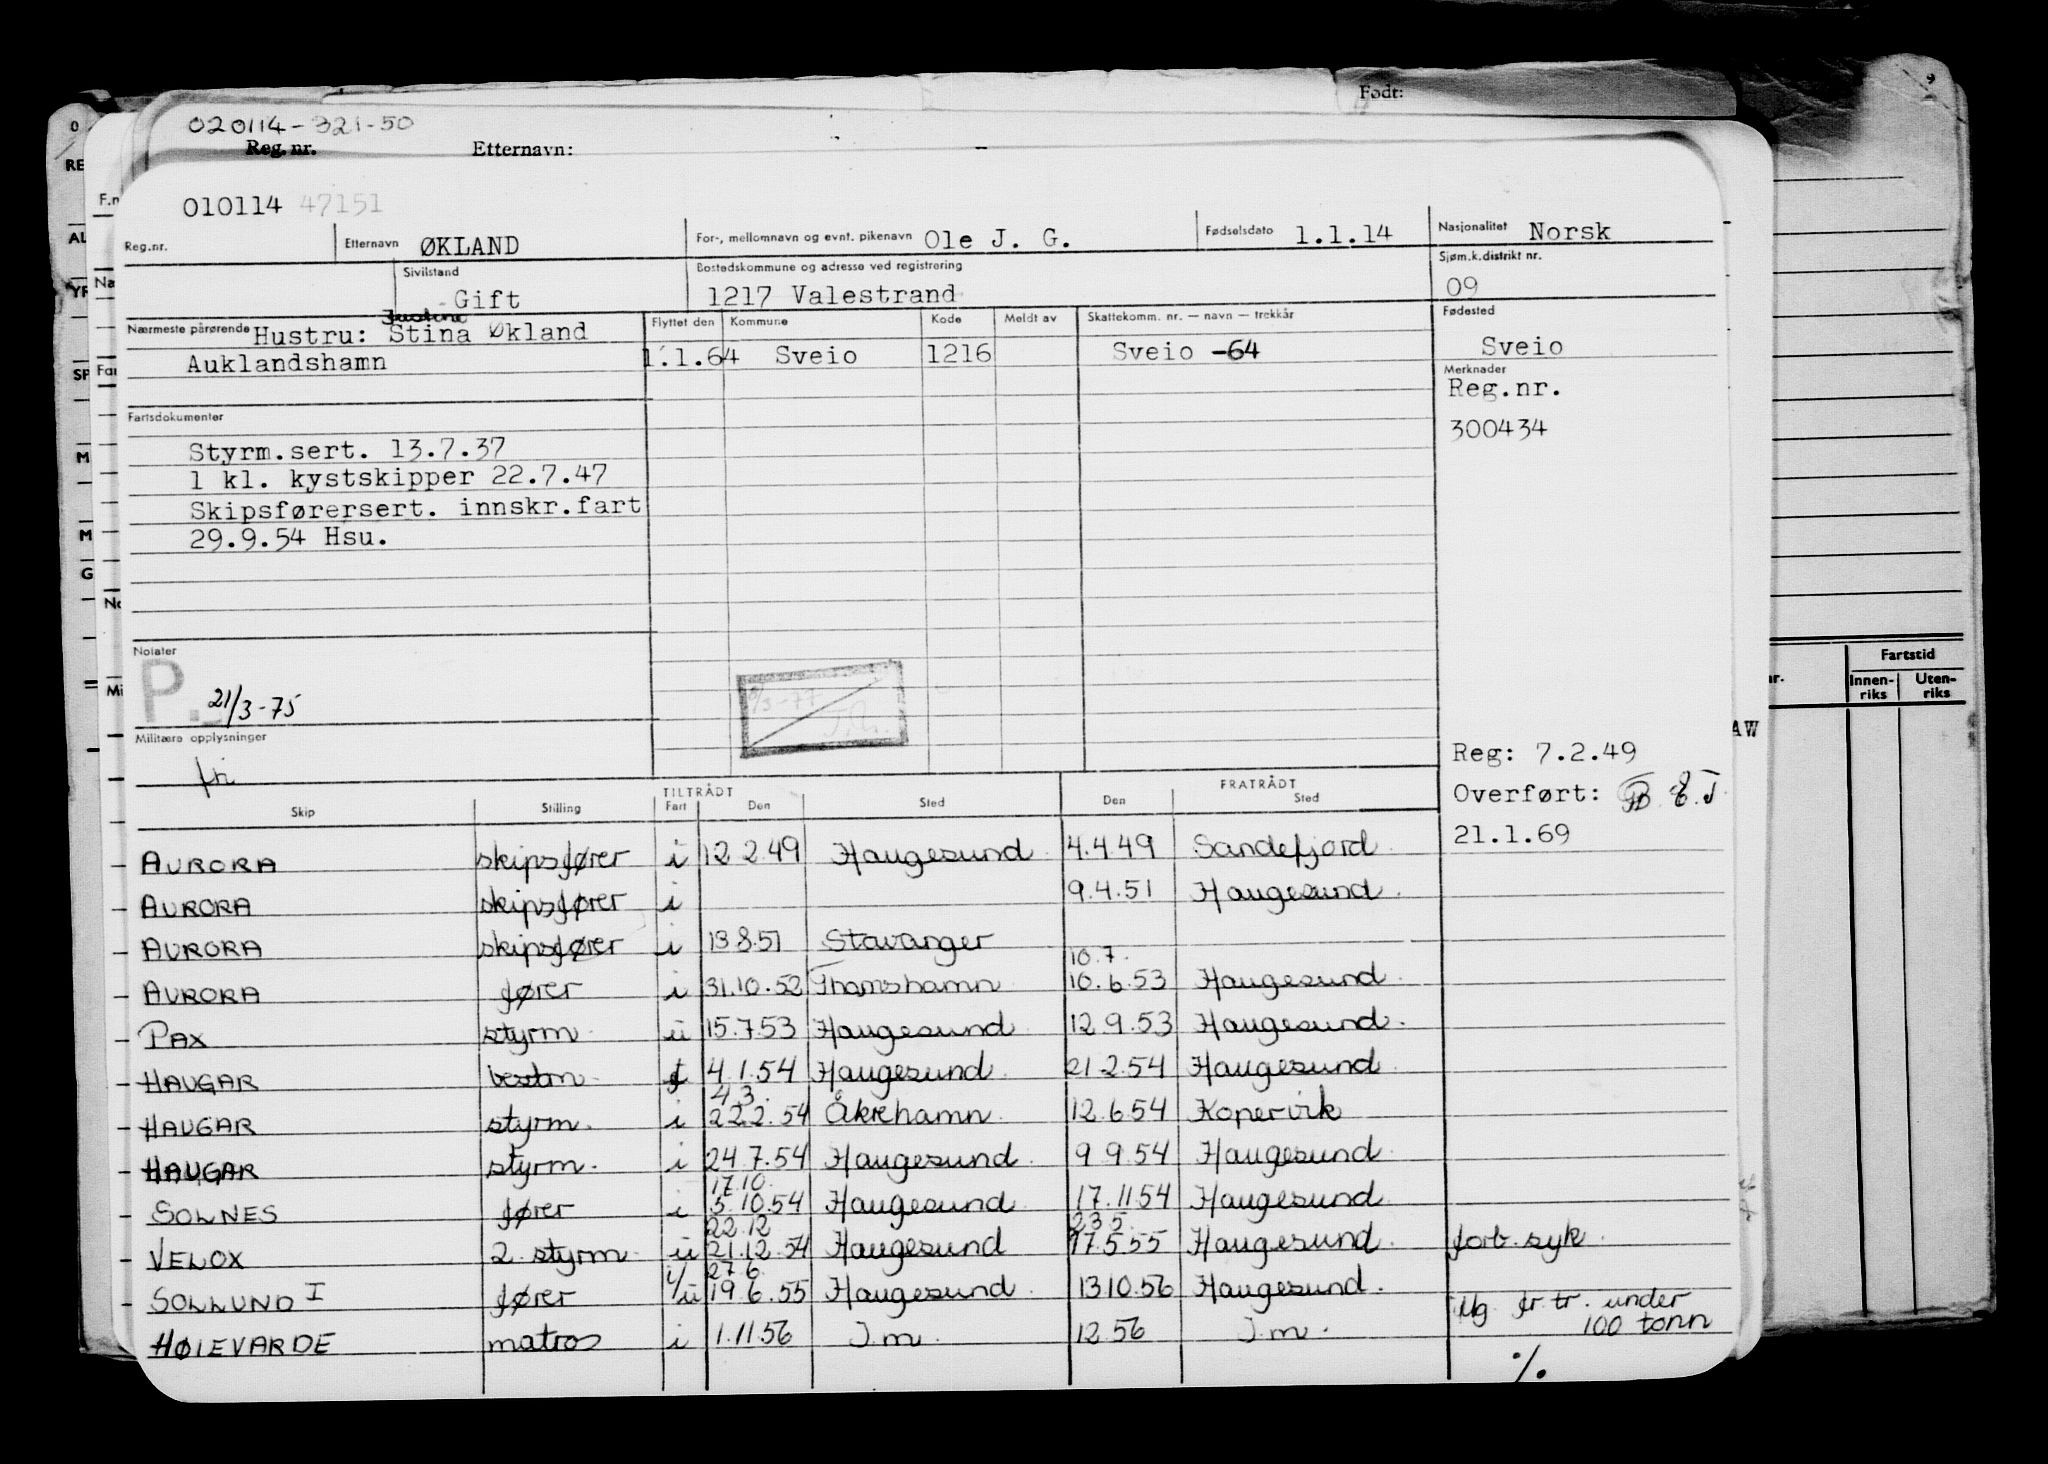 Født:
020114-321-50
Reg. nr. Etternavn:
010114 47151
Reg.nr. Etternavn ØKLAND For-, mellomnavn og evnt. pikenavn Ole J. G. Fødselsdato 1.1.14 Nasjonalitet Norsk
Sivilstand Gift Bostedskommune og adresse ved registrering 1217 Valestrand Sjøm.k.distrikt nr. 09
Nærmeste pårørende Hustru: Stina Økland Flyttet den Kommune Kode Meldt av Skattekomm. nr. — navn — trekkår Fødested
Auklandshamn 1.1.64 Sveio 1216 Sveio -64 Sveio
Merknader
Reg.nr.
300434
Fartsdokumenter
Styrm.sert. 13.7.37
1 kl. kystskipper 22.7.47
Skipsførersert. innskr.fart
29.9.54 Hsu.
Notater
P. 21/3-75
Militære opplysninger
fri
Reg: 7.2.49
Overført: E.T
21.1.69
TILTRÅDT FRATRÅDT
Skip Stilling Fart Den Sted Den Sted
AURORA skipsfører i 12 2.49 Haugesund 4.4.49 Sandefjord
AURORA skipsfører i 9.4.51 Haugesund
AURORA skipsfører i 13 8.51 Stavanger
10.7.
AURORA fører i 31.10.52 Thamshamn 10.6.53 Haugesund
PAX styrm u 15.7.53 Haugesund 12.9.53 Haugesund
HAUGAR bestm f 4.1.54 Haugesund 21 2.54 Haugesund
4 3.
HAUGAR styrm. i 22.2.54 Åkrehamn 12.6.54 Kopervik
HAUGAR styrm. i 24.7.54 Haugesund 9 9.54 Haugesund
17.10.
SOLNES fører i 5.10.54 Haugesund 17.11.54 Haugesund
22.12 23 5.
VELOX 2. styrm u 21.12.54 Haugesund 17.5.55 Haugesund forb. syk.
27 6.
SOLLUND I fører i/u 19 6.55 Haugesund 13 10.56 Haugesund.
HØIEVARDE matros i 1.11.56 J.m. 12 56 J.m. Mg fr. tr. under
100 tonn
%.
Fartstid
Innen-riks Uten-riks
AW